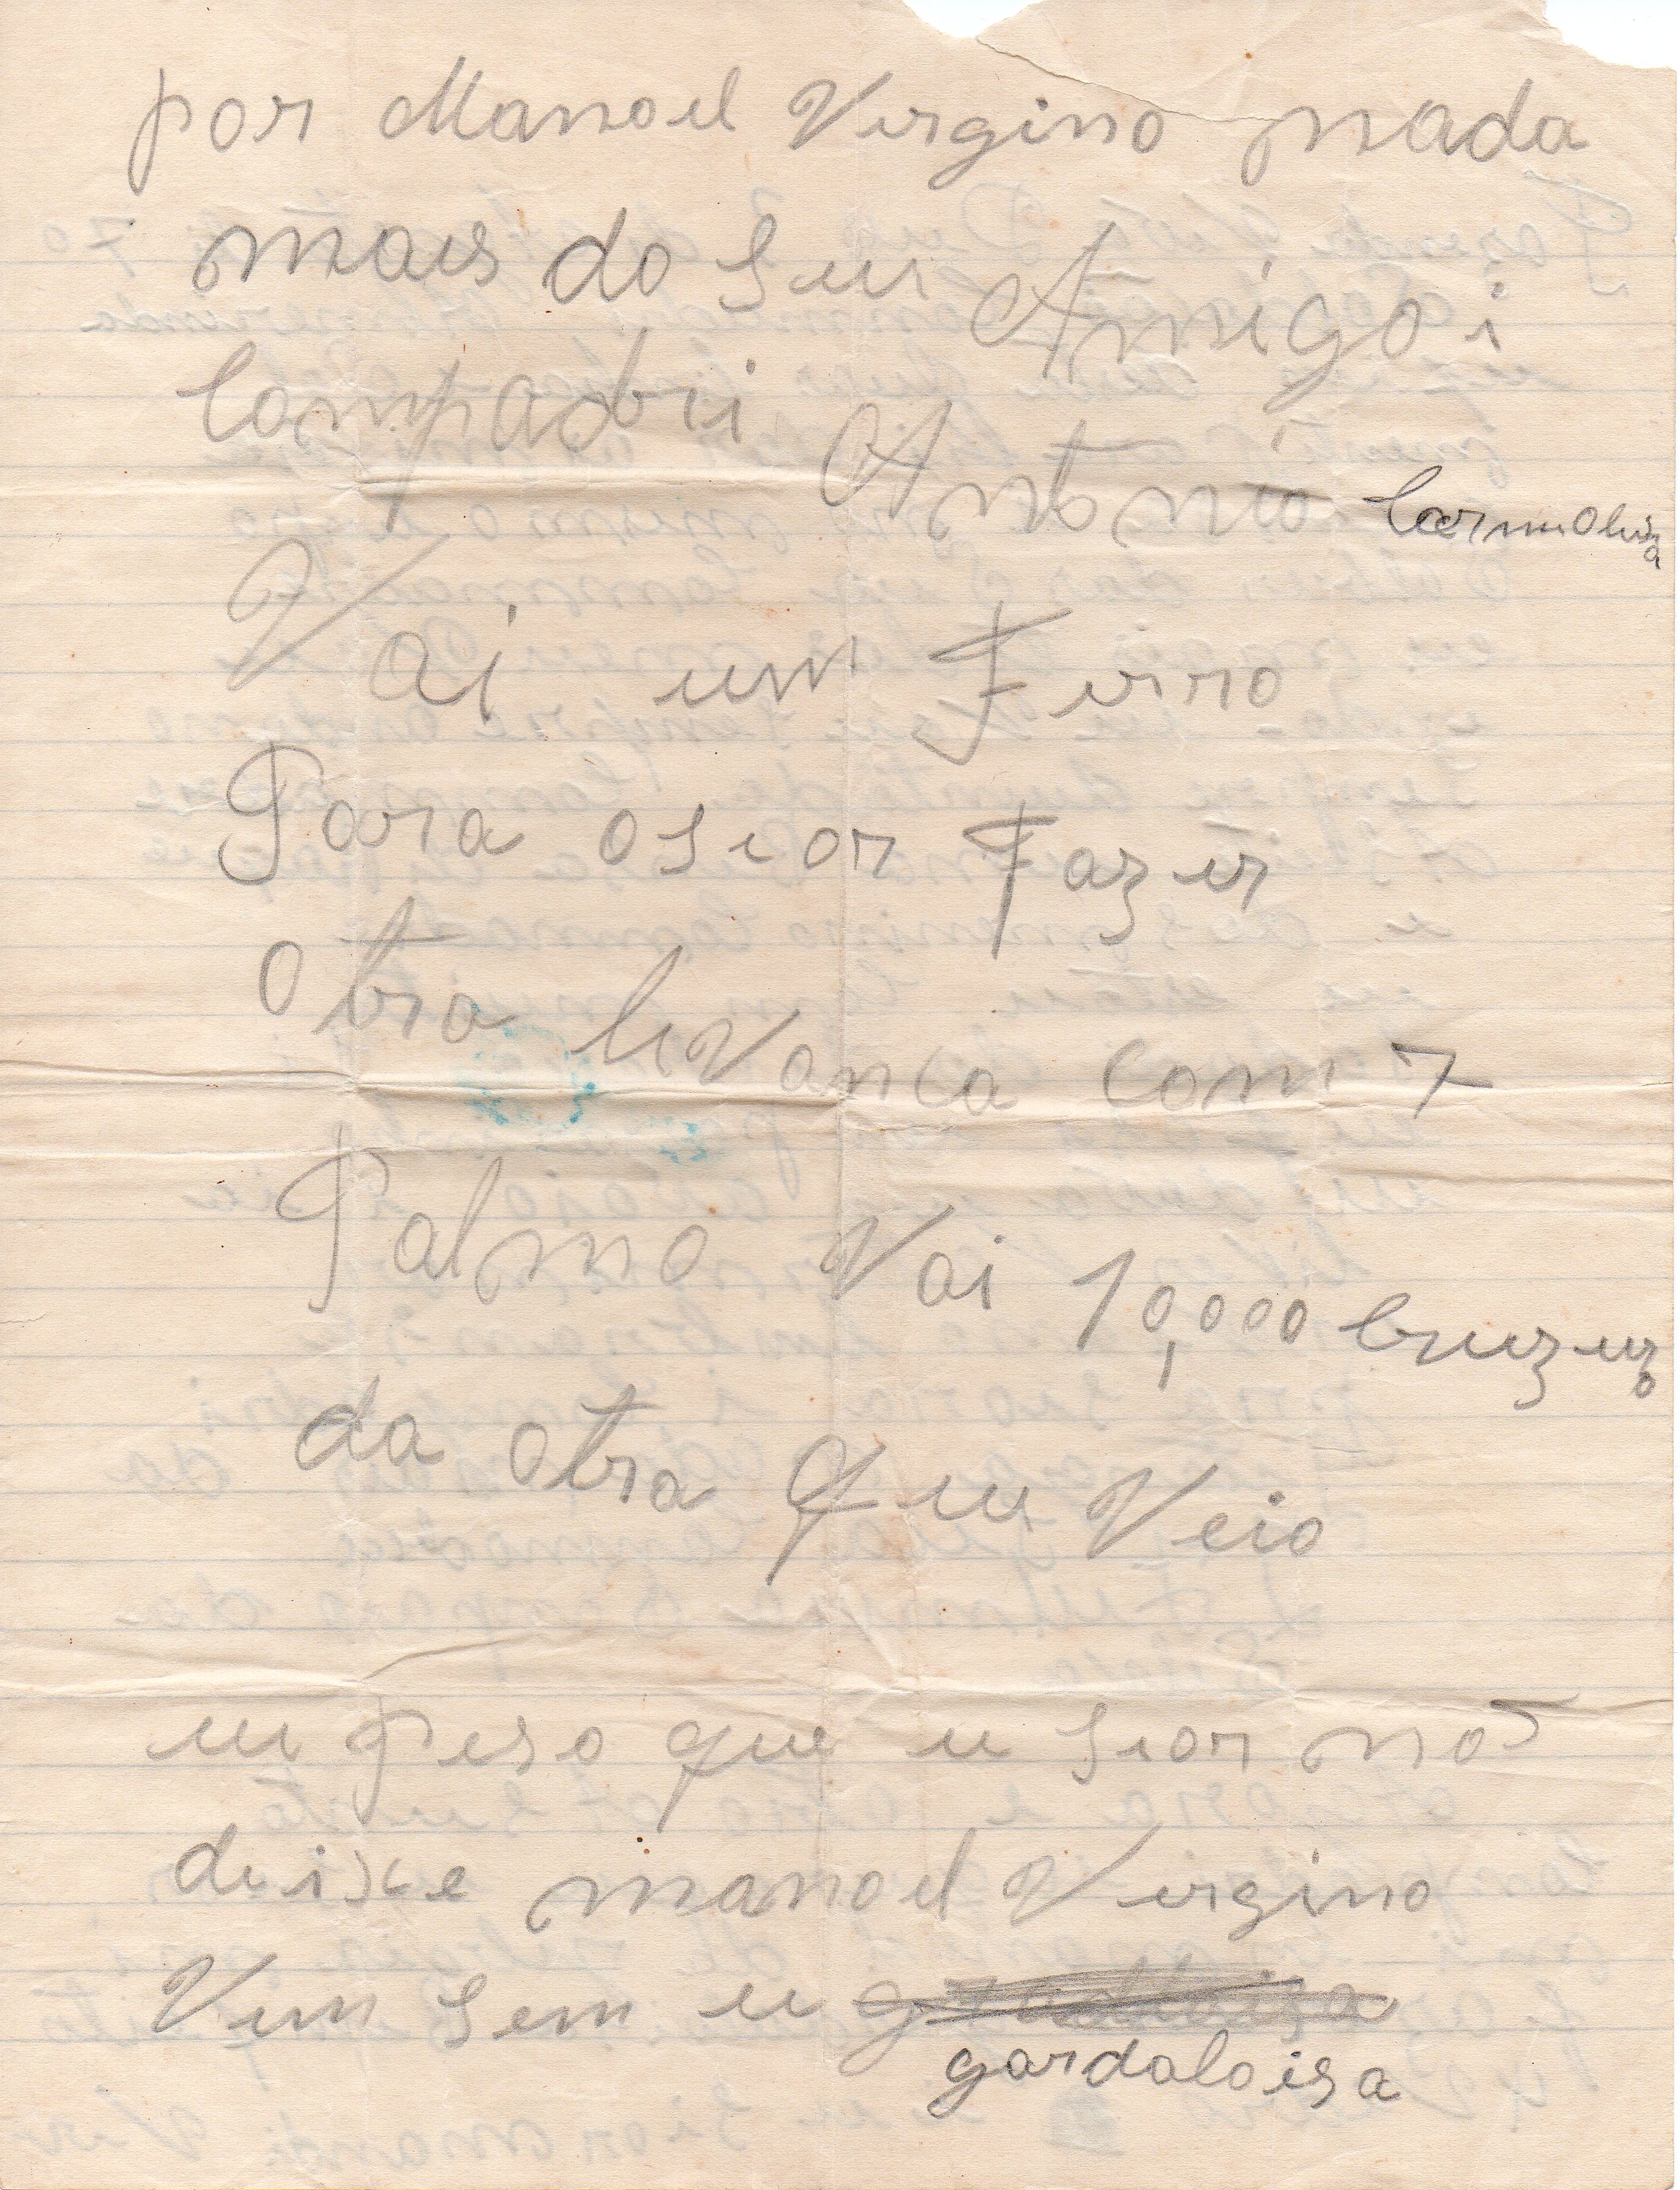 por Manoel Vergino nada
mais do Seu Amigo i
Compadri Antonio
Vai um Ferro
Para o Seor Fazer
Otra levanca com 7
Palmo Vai 10,000 Cruzero
da otra que Veio
eu peso que u Seor não
deixe manoel Vergino
Vim Sem u
gardaloisa